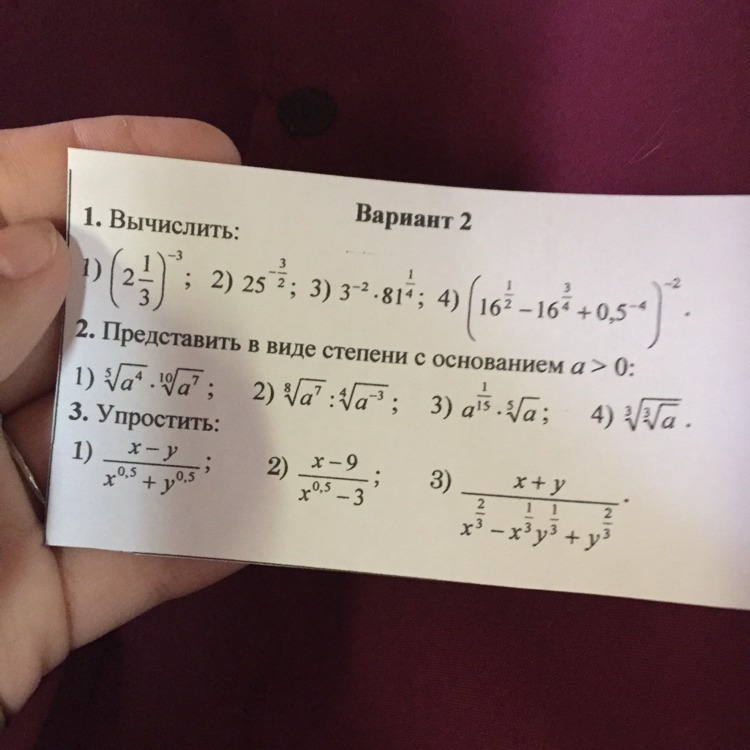 Вариант 2
1. Вычислить:
1) (2 1/3)^{-3}; 2) 25^{-3/2}; 3) 3^{-2}·81^{1/4}; 4) (16^{1/2} − 16^{3/4} + 0,5^{-4})^{-2}.
2. Представить в виде степени с основанием a > 0:
1) ⁵√(a⁴) · ¹⁰√(a⁷); 2) ⁸√(a⁷) : ⁴√(a^{-3}); 3) a^{1/15} · ⁵√a; 4) ³√(³√a).
3. Упростить:
1) (x − y)/(x^{0,5} + y^{0,5}); 2) (x − 9)/(x^{0,5} − 3); 3) (x + y)/(x^{2/3} − x^{1/3}y^{1/3} + y^{2/3}).